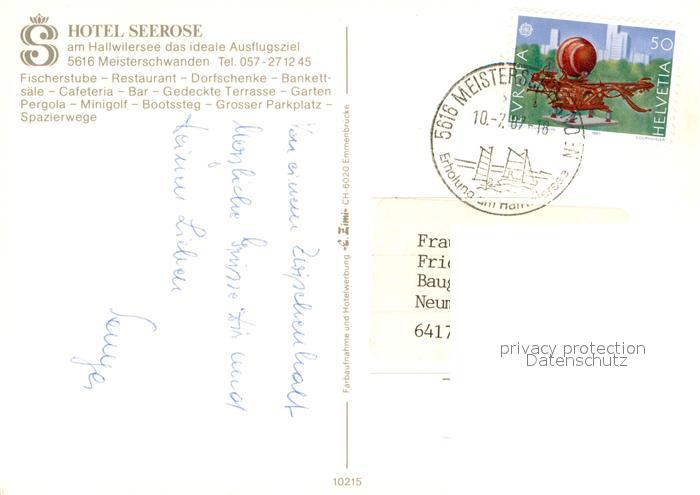 HOTEL SEEROSE
am Hallwilersee das ideale Ausflugsziel
5616 Meisterschwanden Tel. 057-27 12 45
Fischerstube – Restaurant – Dorfschenke – Bankett-
säle – Cafeteria – Bar – Gedeckte Terrasse – Garten
Pergola – Minigolf – Bootssteg – Grosser Parkplatz –
Spazierwege
Von einem Zwischenhalt
herzliche Grüsse Dir und
Deinen Lieben
Farbaufnahme und Hotelwerbung CH-6020 Emmenbrücke
10215
EUROPA
50
HELVETIA
5616 MEISTERS
10.-7.87-18
Erholung am Hallwilersee
Frau
Frie
Baug
Neum
6417
privacy protection
Datenschutz